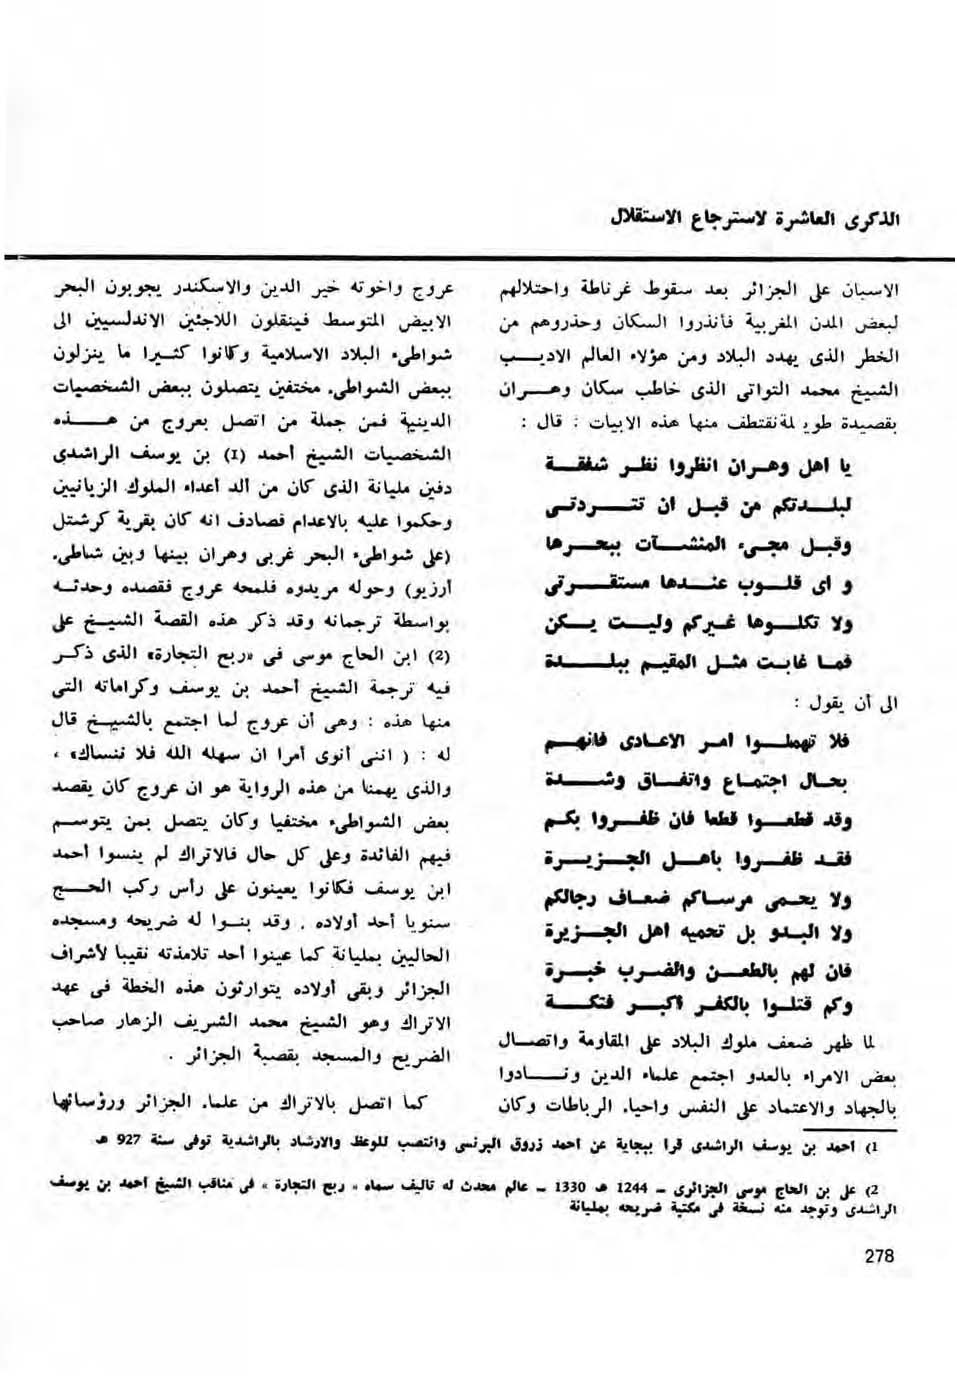 الذكرى العاشرة لاسترجاع الاستقلال
الاسبان على الجزائر بعد سقوط غرناطة واحتلالهم
لبعض المدن المغربية فانذروا السكان وحذروهم من
الخطر الذى يهدد البلاد ومن هؤلاء العالم الاديـــب
الشيخ محمد التواتى الذى خاطب سكان وهـــران
بقصيدة طويلة نقتطف منها هذه الابيات : قال :
يا اهل وهـران انظروا نظـر شفقـــة
لبلـــدتكم من قبـل ان تتـــردتـى
وقبـل مجـىء المنشــآت ببحــرها
و اى قلــوب عنــدها مستقـــرتى
ولا تكلــوها غـيركم وليــت يــكن
فمـا غابـت مثـل المقيـم ببلـــدة
الى أن يقول :
فلا تهملـــوا امـر الاعـادى فانهــم
بحـال اجتمـاع واتفـاق وشـــدة
وقد قطعــوا قطعا فان ظفــروا بكـم
فقـد ظفــروا باهــل الجــزيــرة
ولا يحـمى مرسـاكم ضعـاف رجالكم
ولا البـدو بل تحميه اهل الجــزيرة
فان لهم بالطعــن والضـرب خبـــرة
وكم قتلــوا بالكفـر أكبــر فتكـــة
لما ظهر ضعف ملوك البلاد على المقاومة واتصـــال
بعض الامراء بالعدو اجتمع علماء الدين ونـــادوا
بالجهاد والاعتماد على النفس واحياء الرباطات وكان
عروج واخوته خير الدين والاسكندر يجوبون البحر
الابيض المتوسط فينقلون اللاجئين الاندلسيين الى
شواطىء البلاد الاسلامية وكانوا كثـيرا ما ينزلون
ببعض الشواطىء مختفين يتصلون ببعض الشخصيات
الدينية فمن جملة من اتصل بعروج من هـــذه
الشخصيات الشيخ أحمد (1) بن يوسف الراشدى
دفين مليانة الذى كان من ألد أعداء الملوك الزيانيين
وحكموا عليه بالاعدام فصادف انه كان بقرية كرشتل
(على شواطىء البحر غربى وهران بينها وبين شاطىء
أرزيو) وحوله مريدوه فلمحه عروج فقصده وحدثــه
بواسطة ترجمانه وقد ذكر هذه القصة الشيــخ على
(2) ابن الحاج موسى فى «ربح التجارة» الذى ذكـر
فيه ترجمة الشيخ أحمد بن يوسف وكراماته التى
منها هذه : وهى أن عروج لما اجتمع بالشيــخ قال
له : ( اننى أنوى أمرا ان سهله الله فلا ننساك» ،
والذى يهمنا من هذه الرواية هو ان عروج كان يقصد
بعض الشواطىء مختفيا وكان يتصل بمن يتوســم
فيهم الفائدة وعلى كل حال فالاتراك لم ينسوا أحمد
ابن يوسف فكانوا يعينون على رأس ركب الحـــج
سنويا أحد أولاده . وقد بنــوا له ضريحه ومسجده
الحاليين بمليانة كما عينوا أحد تلامذته نقيبا لأشراف
الجزائر وبقى أولاده يتوارثون هذه الخطة فى عهد
الاتراك وهو الشيخ محمد الشريف الزهار صاحب
الضريح والمسجد بقصبة الجزائر .
كما اتصل بالاتراك من علماء الجزائر ورؤسائها
1) احمد بن يوسف الراشدى قرا ببجاية عن احمد زروق البرنسى وانتصب للوعظ والارشاد بالراشدية توفى سنة 927 هـ
2) على بن الحاج موسى الجزائرى ـ 1244 هـ 1330 ـ عالم محدث له تاليف سماه « ربح التجارة » فى مناقب الشيخ احمد بن يوسف
الراشدى وتوجد منه نسخة فى مكتبة ضريحه بمليانة
278